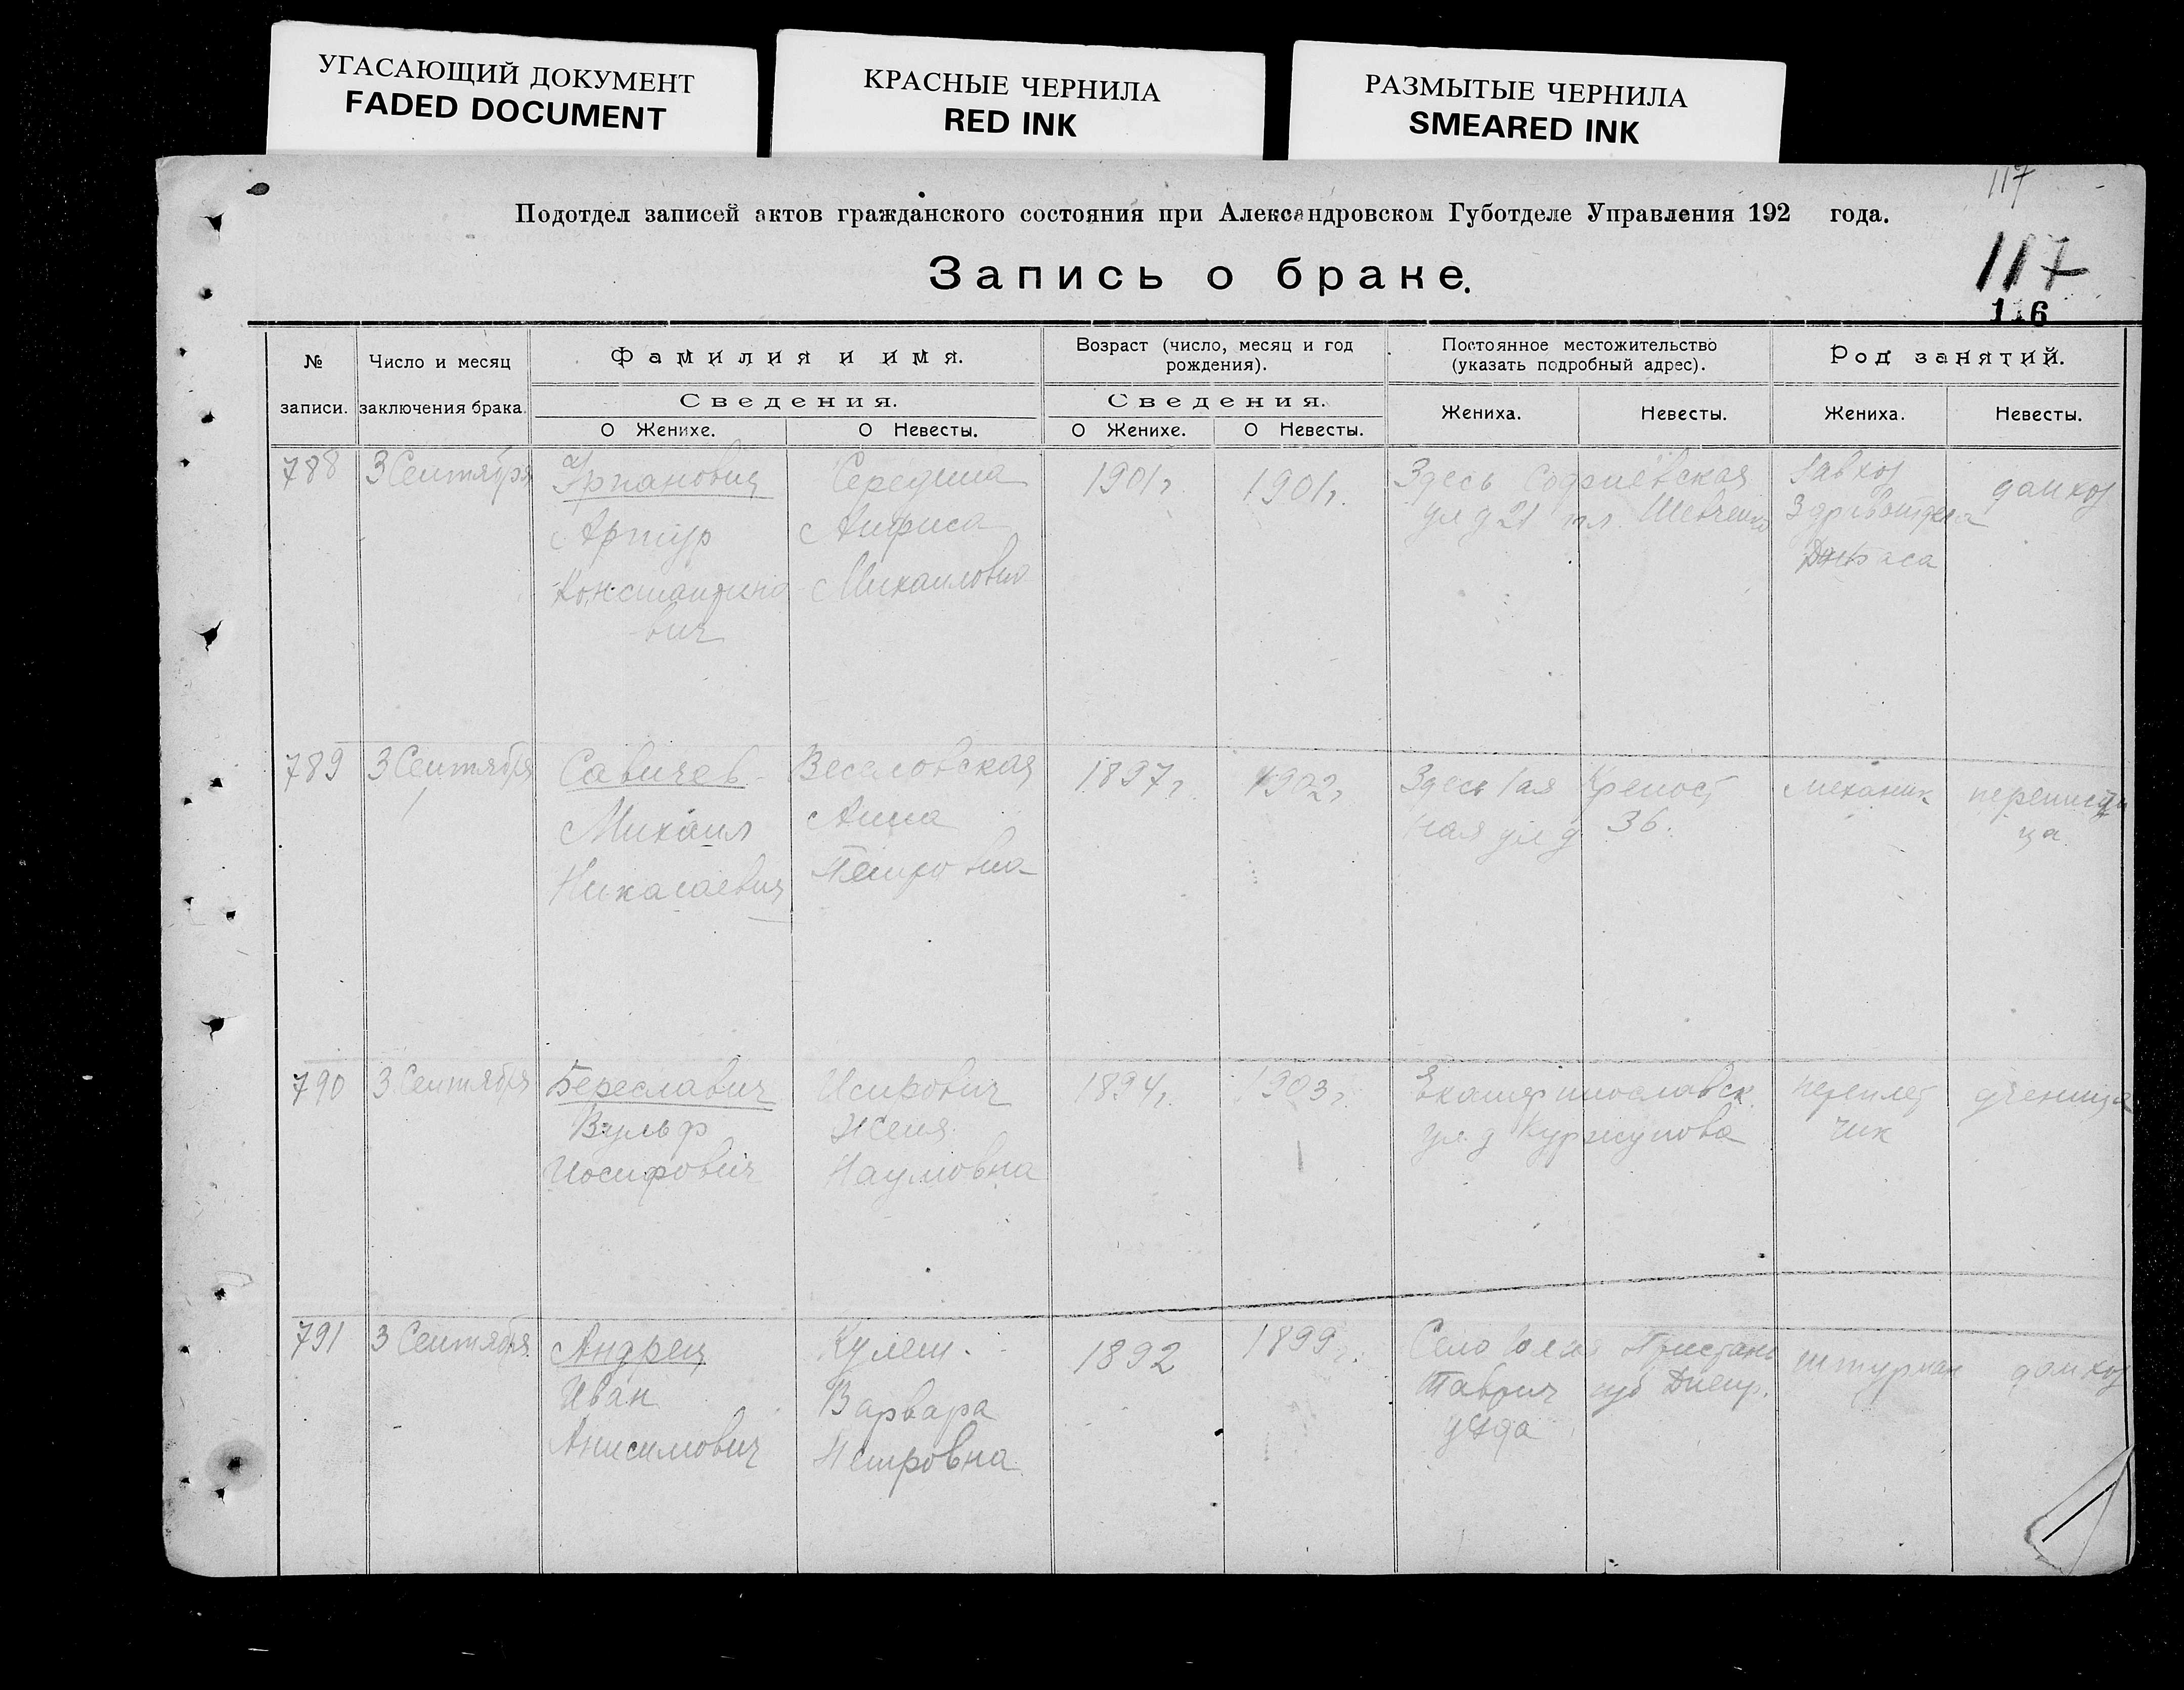 УГАСАЮЩИЙ ДОКУМЕНТ
FADED DOCUMENT
КРАСНЫЕ ЧЕРНИЛА
RED INK
РАЗМЫТЫЕ ЧЕРНИЛА
SMEARED INK
117
Подотдел записей актов гражданского состояния при Александровском Губотделе Управления 192 года.
117
Запись о браке.
116
№ записи.
Число и месяц заключения брака.
Фамилия и имя.
Сведения.
О Женихе.
О Невесты.
Возраст (число, месяц и год рождения).
Сведения.
О Женихе.
О Невесты.
Постоянное местожительство
(указать подробный адрес).
Жениха.
Невесты.
Род занятий.
Жениха.
Невесты.
788
3 Сентября
Артур
Константино
вич
Середина
Анфиса
Михаиловна
1901г.
1901г.
Здесь Софиевская
ул д 21 пл. Шевченко
Завхоз
Здравотдела
домхоз
789
3 Сентября
Савичев
Михаил
Николаевич
Веселовская
Анна
Петровна
1897г.
1902г
Здесь 1ая Крепост
ная ул д 36.
механик
переписчи
ца
790
3 Сентября
Береславич
Вульф
Иосифович
Женя
Наумовна
1894г.
1903г.
Екатеринославск.
ул. д
переплет
чик
ученица
791
3 Сентября
Андрец
Иван
Анисимович
Кулеш.
Варвара
Петровна
1892
1899г.
Село Пристань
Таврич губ Днепр.
уезда
штурман
домхоз